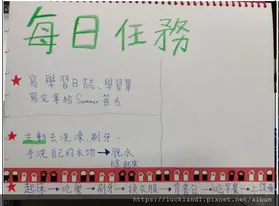 每日任務
寫學習日誌、學習單
寫完拿給Summer簽名
主動去洗澡、刷牙。
手洗自己的衣物→脫水
晾起來
起床→吃藥→刷牙→換衣服→背書包→吃早餐→上課
https://luckland1.pixnet.net/album